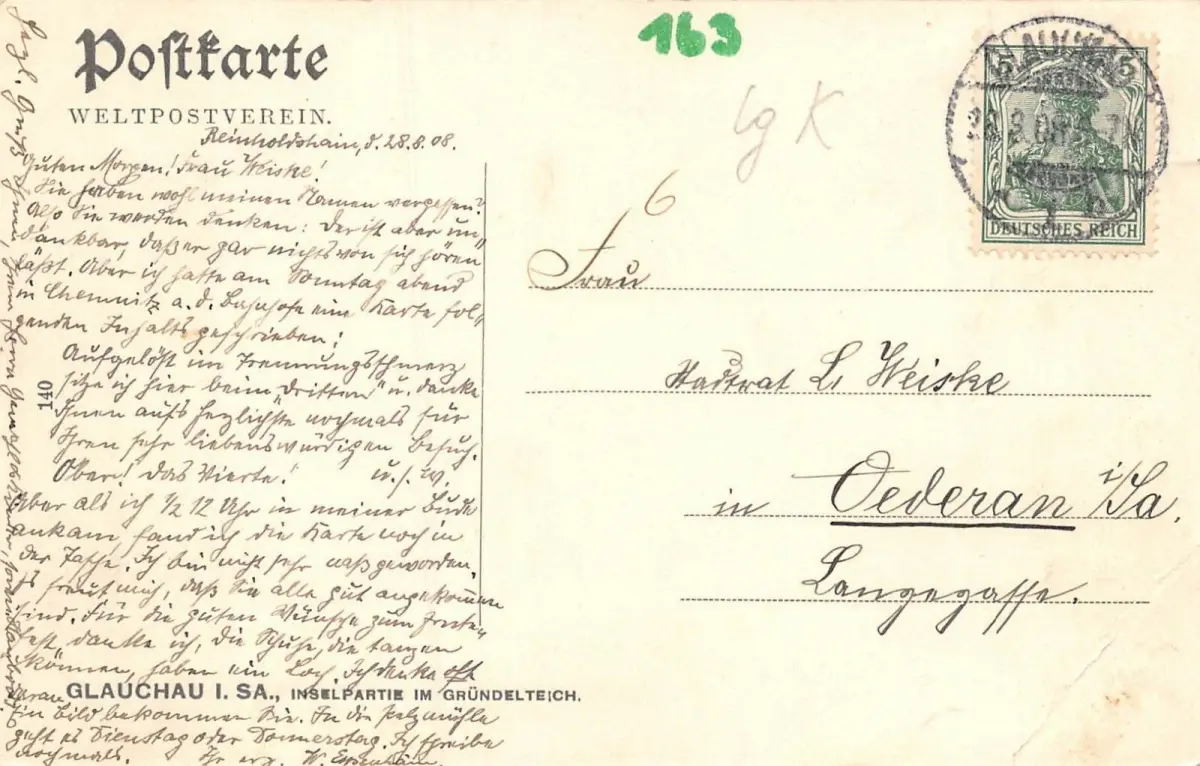 Postkarte
WELTPOSTVEREIN.
163
lg K
6
DEUTSCHES REICH
5 5
Reinholdshain, d. 28.8.08.
Guten Morgen! Frau Weiske!
Sie haben wohl meinen Namen vergessen?
Also Sie werden denken: der ist aber un„
dankbar, daß er gar nichts von sich hören
läßt. Aber ich hatte am Sonntag abend
in Chemnitz a. d. Bahnhofe eine Karte fol„
genden Inhalts geschrieben:
Aufgelöst im Trennungsschmerz
sitze ich hier beim „Dritten“ u. danke
Ihnen aufs herzlichste nochmals für
Ihren sehr liebenswürdigen Besuch.
Ober! das Vierte! u. s. w.
Aber als ich ½ 12 Uhr in meiner Bude
ankam, fand ich die Karte noch in
der Tasche. Ich bin nicht sehr naß geworden.
Es freut mich, daß Sie alle gut angekommen
sind. Für die guten Wünsche zum
fest, danke ich, die Schuhe, die tanzen
können, haben ein Loch. Ich denke oft
daran
Ein Bild bekommen Sie. In die Pelzmühle
geht es Dienstag oder Donnerstag. Ich schreibe
nochmals. Ihr erg. W.
Herzl. Gruß Ihnen, Ihrem Herrn Gemahl
140
GLAUCHAU I. SA., INSELPARTIE IM GRÜNDELTEICH.
Frau
Stadtrat L. Weiske
in Oederan i/Sa.
Langegasse.